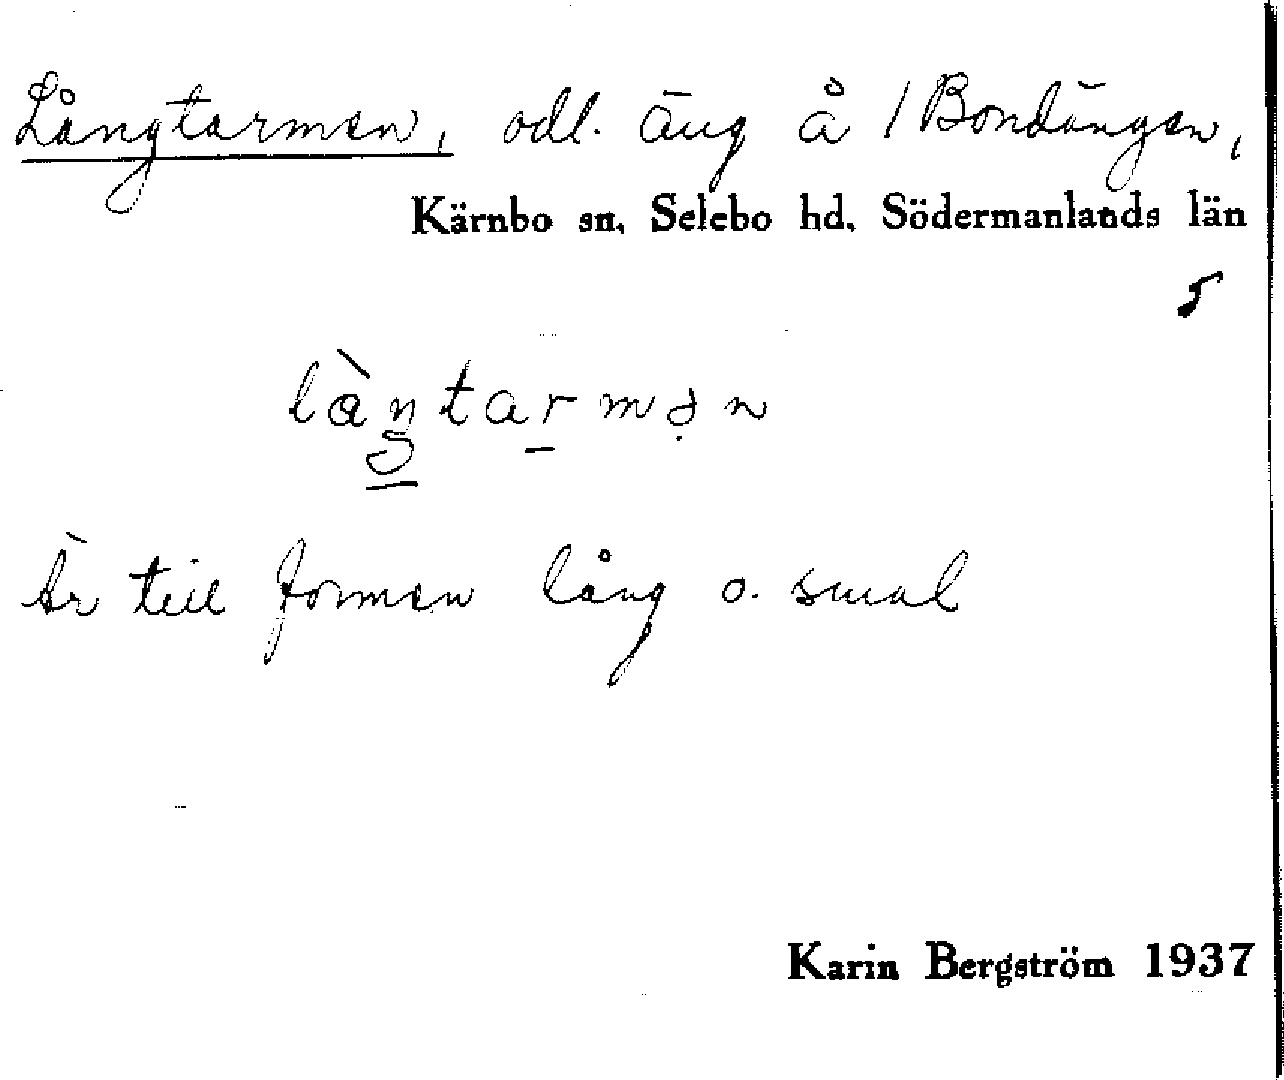 Långtarmen, odl. äng å /Bondängen,
Kärnbo sn, Selebo hd, Södermanlands län
5
làŋtarmən
Är till formen lång o. smal
Karin Bergström 1937